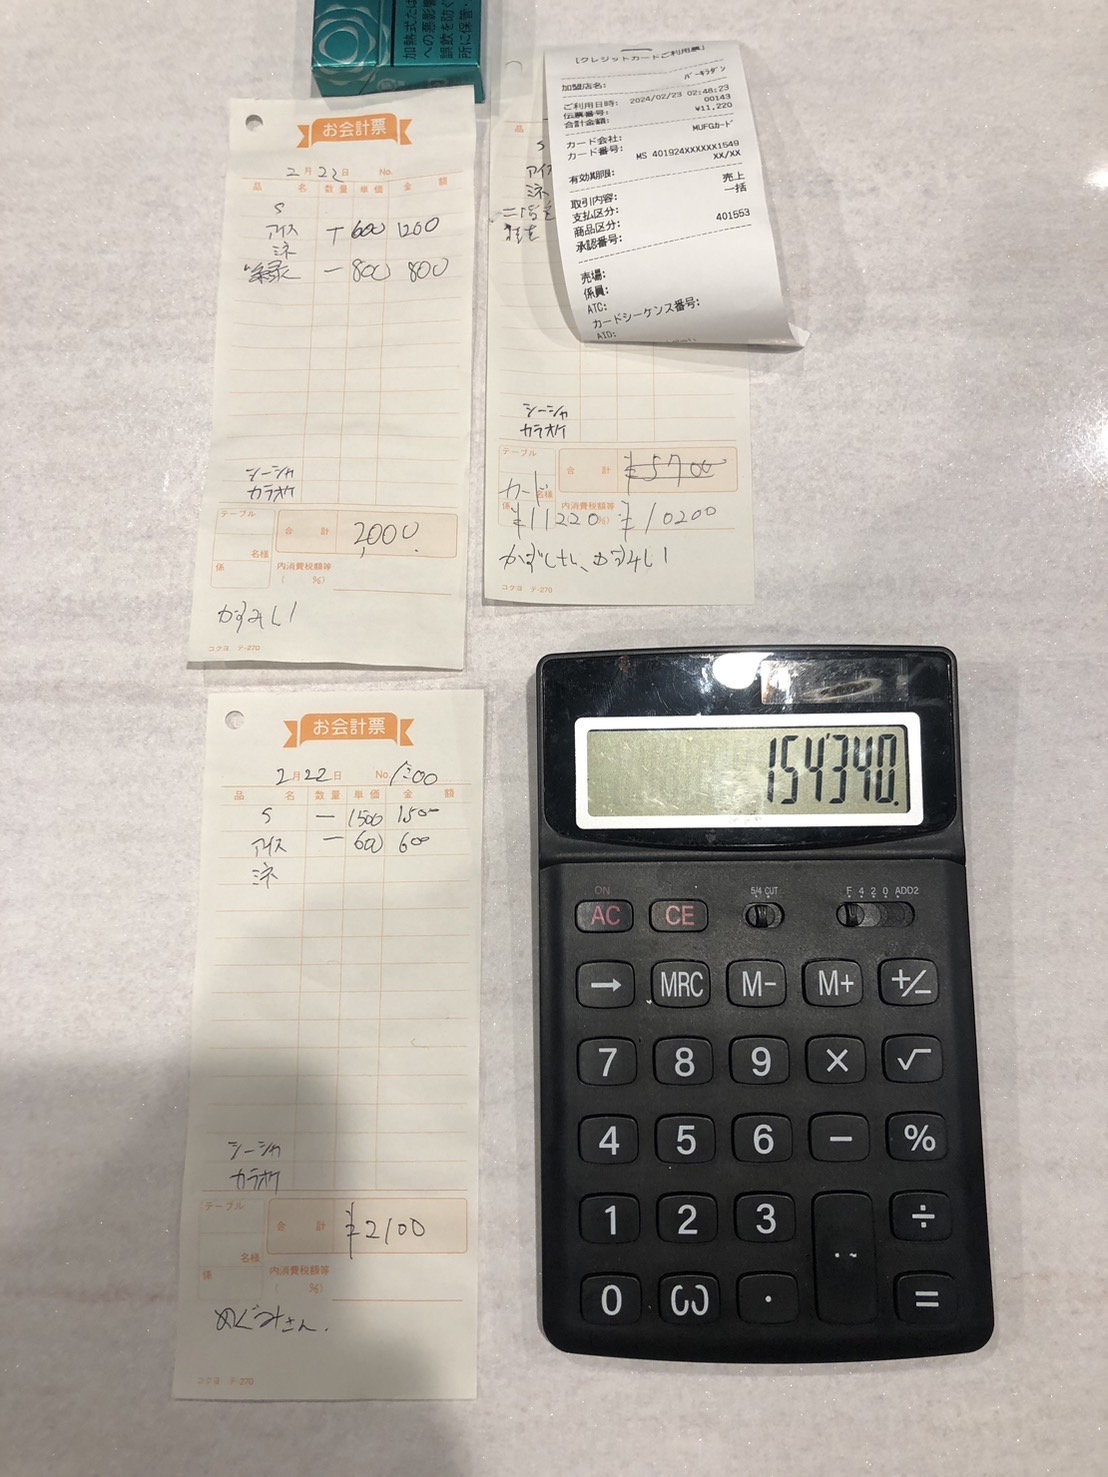 加熱式たは
への悪影響
誤飲を防ぐ
所に保管・
お会計票
2月22日 No.
品 名 数量 単価 金 額
S
アイス T 600 1200
ミネ
緑 一 800 800
シーシャ
カラオケ
テーブル
合 計 2,000
名様
係
内消費税額等
( %)
かすみしい
コクヨ テ-270
品
S
アイス
ミネ
シーシャ
カラオケ
テーブル
合 計 ¥5700
カード
名様
係
内消費税額等
¥11220 %) ¥10200
コクヨ テ-270
[クレジットカードご利用票]
加盟店名:
バーキラダン
ご利用日時: 2024/02/23 02:48:23
伝票番号: 00143
合計金額: ¥11,220
カード会社: MUFGカード
カード番号:
MS 401924XXXXXX1549
有効期限: XX/XX
取引内容: 売上
支払区分: 一括
商品区分:
承認番号: 401553
売場:
係員:
ATC:
カードシーケンス番号:
AID:
お会計票
2月22日 No.
品 名 数量 単価 金 額
S 一 1500 1500
アイス 一 600 600
ミネ
シーシャ
カラオケ
テーブル
合 計 ¥2100
名様
係
内消費税額等
%)
めぐみさん.
コクヨ テ-270
154'340.
ON
5/4 CUT
F 4 2 0 ADD2
AC CE
→ MRC M- M+ +/-
7 8 9 × √
4 5 6 − %
1 2 3 ÷
0 · =